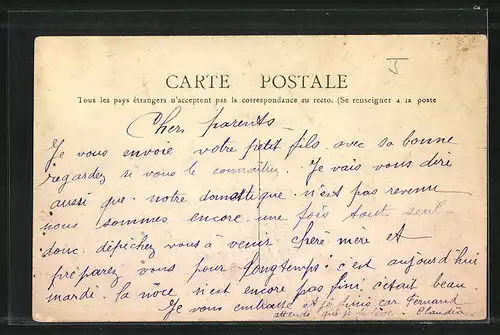 J
CARTE POSTALE
Tous les pays étrangers n'acceptent pas la correspondance au recto. (Se renseigner à la poste
Chers parents
Je vous envoie votre petit fils avec sa bonne
regardez si vous le connaîtrez. Je vais vous dire
aussi que notre domestique n'est pas revenu
nous sommes encore une fois tout seul
donc dépichez vous à venir cheré mère et
préparez vous pour longtemps: c'est aujourd'hui
mardi. la noce n'est encore pas fini, c'était beau.
Je vous embrasse et je finis car Fernand
attends que je le lève. Claudia